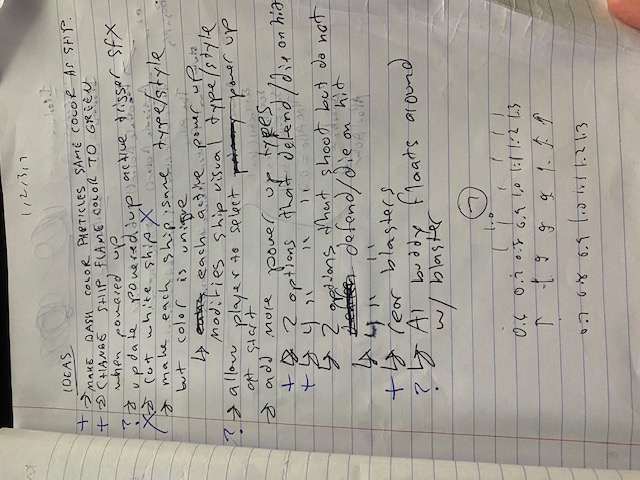 1,2,3,7
IDEAS
+ → MAKE DASH COLOR PARTICLES SAME COLOR AS SHIP.
+ → CHANGE SHIP FLAME COLOR TO GREEN
when powered up
? → update powered up active trigger sfx
X → cut white ship X
→ make each ship same type/style
but color is unique
↳ each active power up
modifies ship visual type/style
? → allow player to select power up
at start
→ add more power up types
+ ↳ 2 options that defend/die on hit
+ ↳ 4 " " "
↳ 2 options that shoot but do not
defend/die on hit
↳ 4 " "
+ ↳ rear blasters
? ↳ AI buddy floats around
w/ blaster
7
1.0
0.6 0.7 0.8 0.9 1.0 1.1 1.2 1.3
0.7 0.8 0.9 1.0 1.1 1.2 1.3